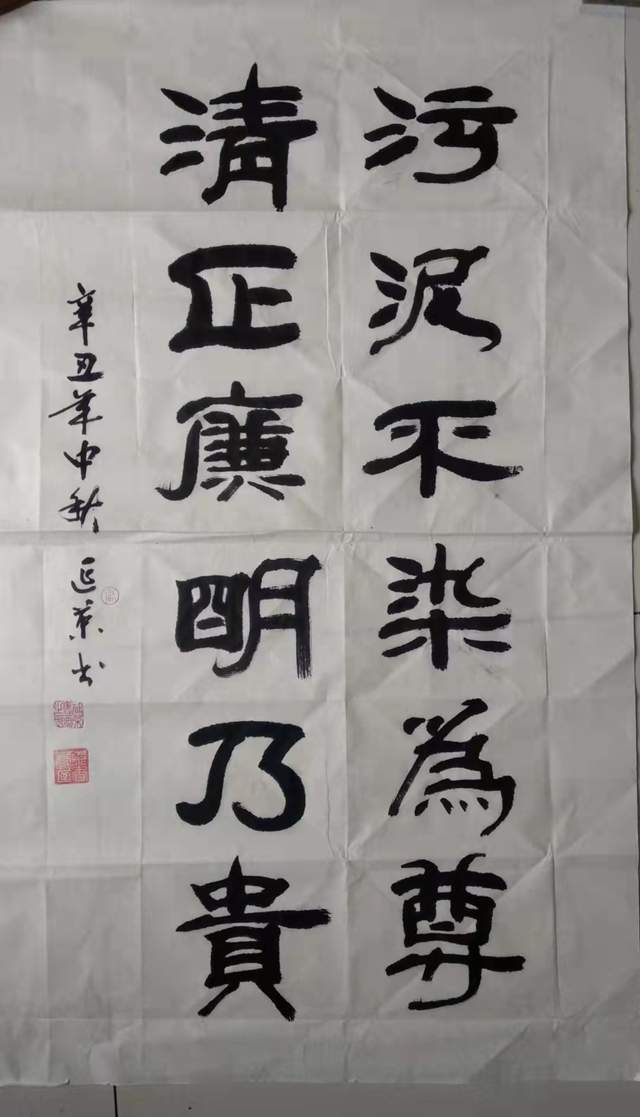 污泥不染為尊
清正廉明乃貴
辛丑年中秋 延景书